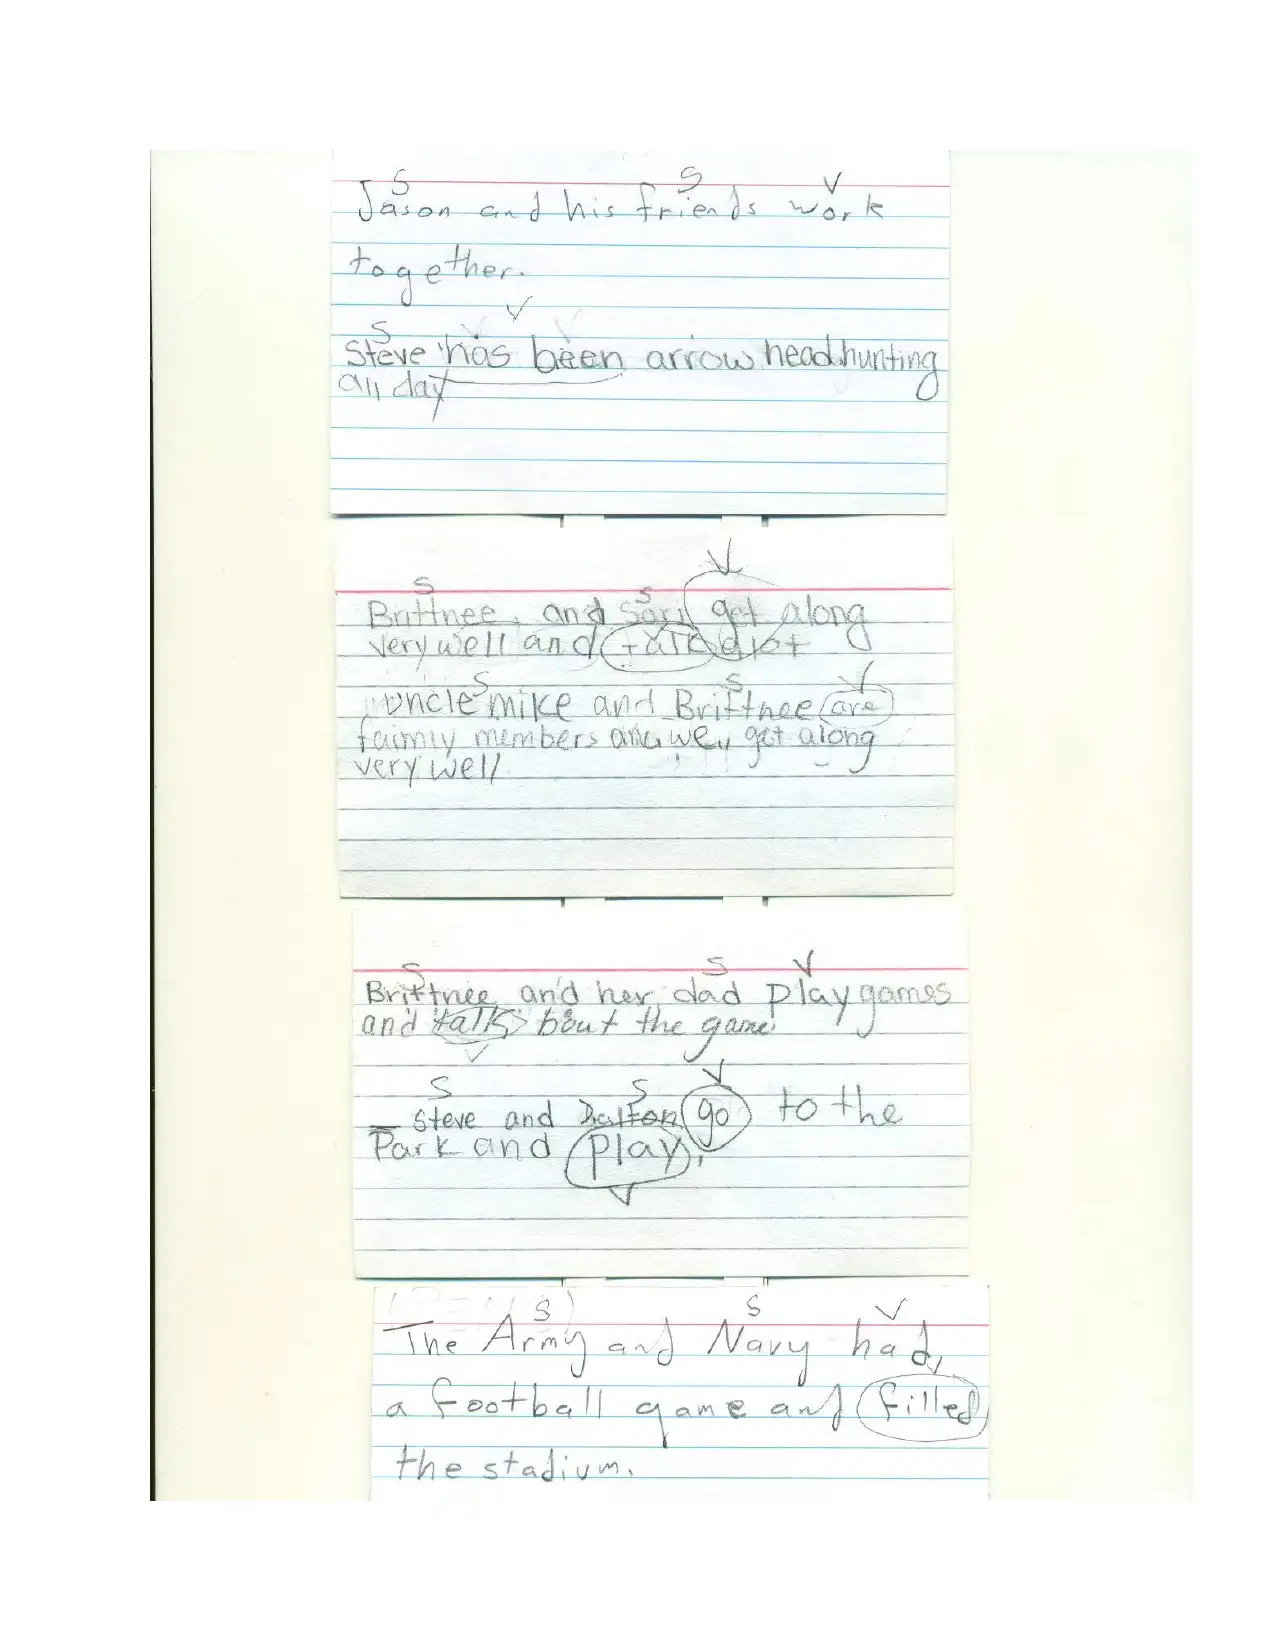 S S V
Jason and his friends work
together.
V
S
Steve has been arrow head hunting
all day
V
S S
Brittnee, and Sari get along
very well and talk alot
S S V
uncle mike and Brittnee are
faimly members and get along
very well
S S V
Brittnee and her dad play games
and talk bout the game.
V
S S V
Steve and Dalton go to the
Park and play.
V
S S V
The Army and Navy had,
a football game and filled
the stadium.